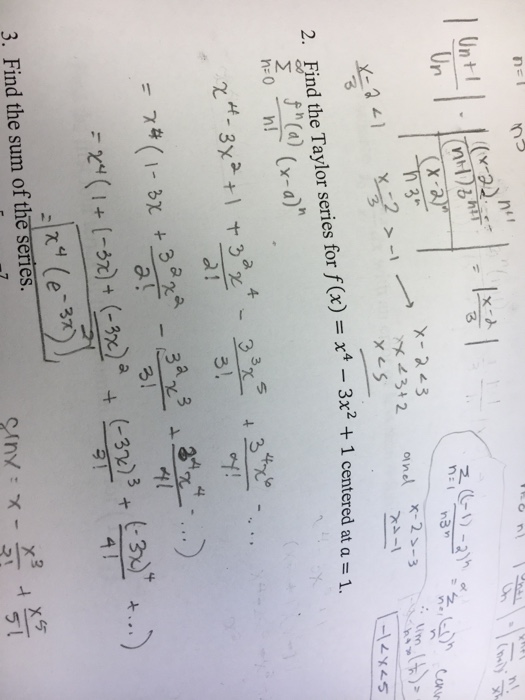 n=1 n3
| Un+1 / Un | · | ((x-2) n+1 / (n+1)3^(n+1)) / ((x-2)^n / n3^n) | = | x-2 / 3 |
Σ n=1 ((-1)-2)^n / n3^n = Σ n=1 (-1)^n / n
x-2 / 3 < 1 x-2 / 3 > -1 → x-2<3 and x-2>-3
x<3+2 x>-1
x<5
-1<x<5
2. Find the Taylor series for f(x) = x⁴ − 3x² + 1 centered at a = 1.
∞ Σ n=0 fⁿ(a) / n! (x-a)ⁿ
x⁴ - 3x² + 1 + 3²x⁴ / 2! - 3³x⁵ / 3! + 3⁴x⁶ / 4! - ...
= x⁴ (1 - 3x + 3²x² / 2! - 3²x³ / 3! + 3⁴x⁴ / 4! - ...)
= x⁴ (1 + (-3x) + (-3x)² / 2! + (-3x)³ / 3! + (-3x)⁴ / 4! + ...)
= x⁴ (e^-3x)
3. Find the sum of the series.
sinx = x - x³ / 3! + x⁵ / 5!